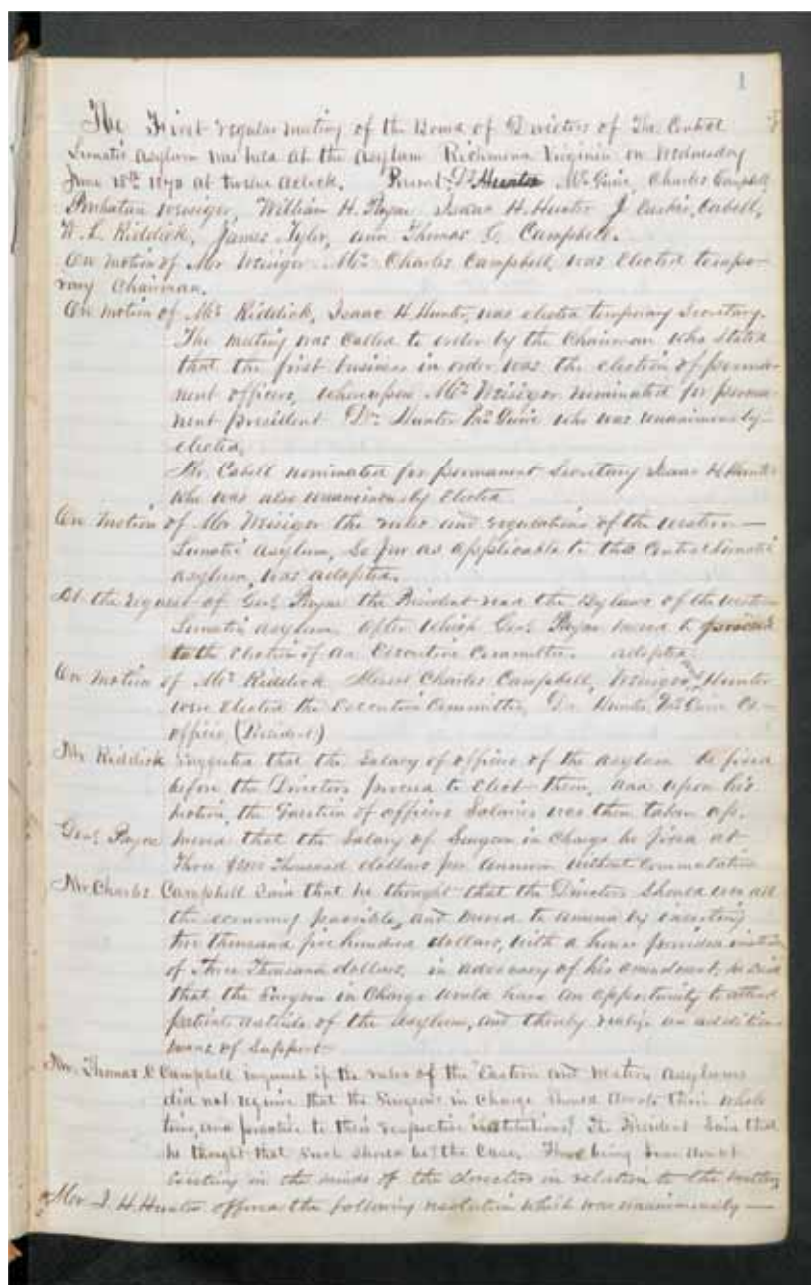 1
The First regular meeting of the Board of Directors of The Central
Lunatic Asylum was held at the Asylum Richmond Virginia on Wednesday
June 15th 1870 at twelve oclock. Present Dr Hunter McGuire, Charles Campbell,
Weisiger, William H. Payne Isaac H. Hunter J Cabell,
W. L. Riddick, James Tyler, and Thomas C. Campbell.
On motion of Mr Weisiger Mr Charles Campbell, was elected tempo-
rary Chairman.
On motion of Mr Riddick, Isaac H Hunter, was elected temporary Secretary.
The meeting was called to order by the Chairman who stated
that the first business in order was the election of perma-
nent officers, whereupon Mr Weisiger nominated for perma-
nent president Dr Hunter McGuire who was unanimously
elected.
Mr. Cabell nominated for permanent Secretary Isaac H Hunter
who was also unanimously elected
On motion of Mr Weisiger the rules and regulations of the western
Lunatic Asylum, so far as applicable to the Central Lunatic
asylum, was adopted.
At the request of Genl Payne the President read the By laws of the western
Lunatic asylum after which Genl Payne moved to proceed
to the election of an Executive Committee. adopted
On motion of Mr Riddick Messrs Charles Campbell, Weisiger and Hunter
were elected the Executive Committee, Dr Hunter McGuire Ex-
officio (President)
Mr Riddick suggested that the Salary of officers of the asylum be fixed
before the Directors proceed to elect them, and upon his
motion, the question of officers Salaries was then taken up.
Genl Payne moved that the Salary of Surgeon in Charge be fixed at
Three Thousand dollars per annum without commutation
Mr Charles Campbell said that he thought that the Directors should use all
the economy possible, and moved to amend by inserting
two thousand five hundred dollars, with a house provided instead
of Three Thousand dollars. in advocacy of his amendment, he said
that the Surgeon in Charge would have an opportunity to attend
patients outside of the asylum, and thereby realize an addition
means of support
Mr. Thomas C Campbell inquired if the rules of the Eastern and western asylums
did not require that the Surgeons in Charge should devote their whole
time, and practice to their respective institutions? The President said that
he thought that such should be the case. There being some doubt
existing in the minds of the directors in relation to the matter,
Mr I. H. Hunter offered the following resolution which was unanimously